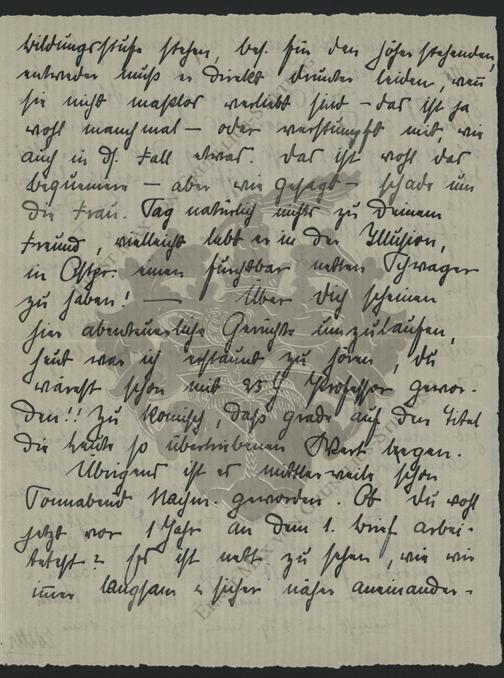 bildungsstufe stehen, bes. für den höher stehenden,
entweder muß er direkt drunter leiden, wenn
sie nicht maßlos verliebt sind – das ist ja
wohl manchmal – oder verstumpft mit, wie
auch in ds. Fall etwas. Das ist wohl das
bequemere – aber wie gesagt – schade um
die Frau. Sag natürlich nichts zu Deinem
Freund, vielleicht lebt er in der Illusion,
in Ostpr. einen furchtbar netten Schwager
zu haben! — Über Dich scheinen
hier abenteuerliche Gerüchte umzulaufen,
heut war ich erstaunt zu hören, du
wärest schon mit 25 J Professor gewor-
den!! Zu komisch, daß grade auf den Titel
die Leute so übertriebenen Wert legen.
Übrigens ist es mittlerweile schon
Sonnabend Nachm. geworden. Ob Du wohl
jetzt vor 1 Jahr an dem 1. Brief arbei-
tetest? Es ist nett zu sehen, wie wir
immer langsam u sicher näher aneinander-